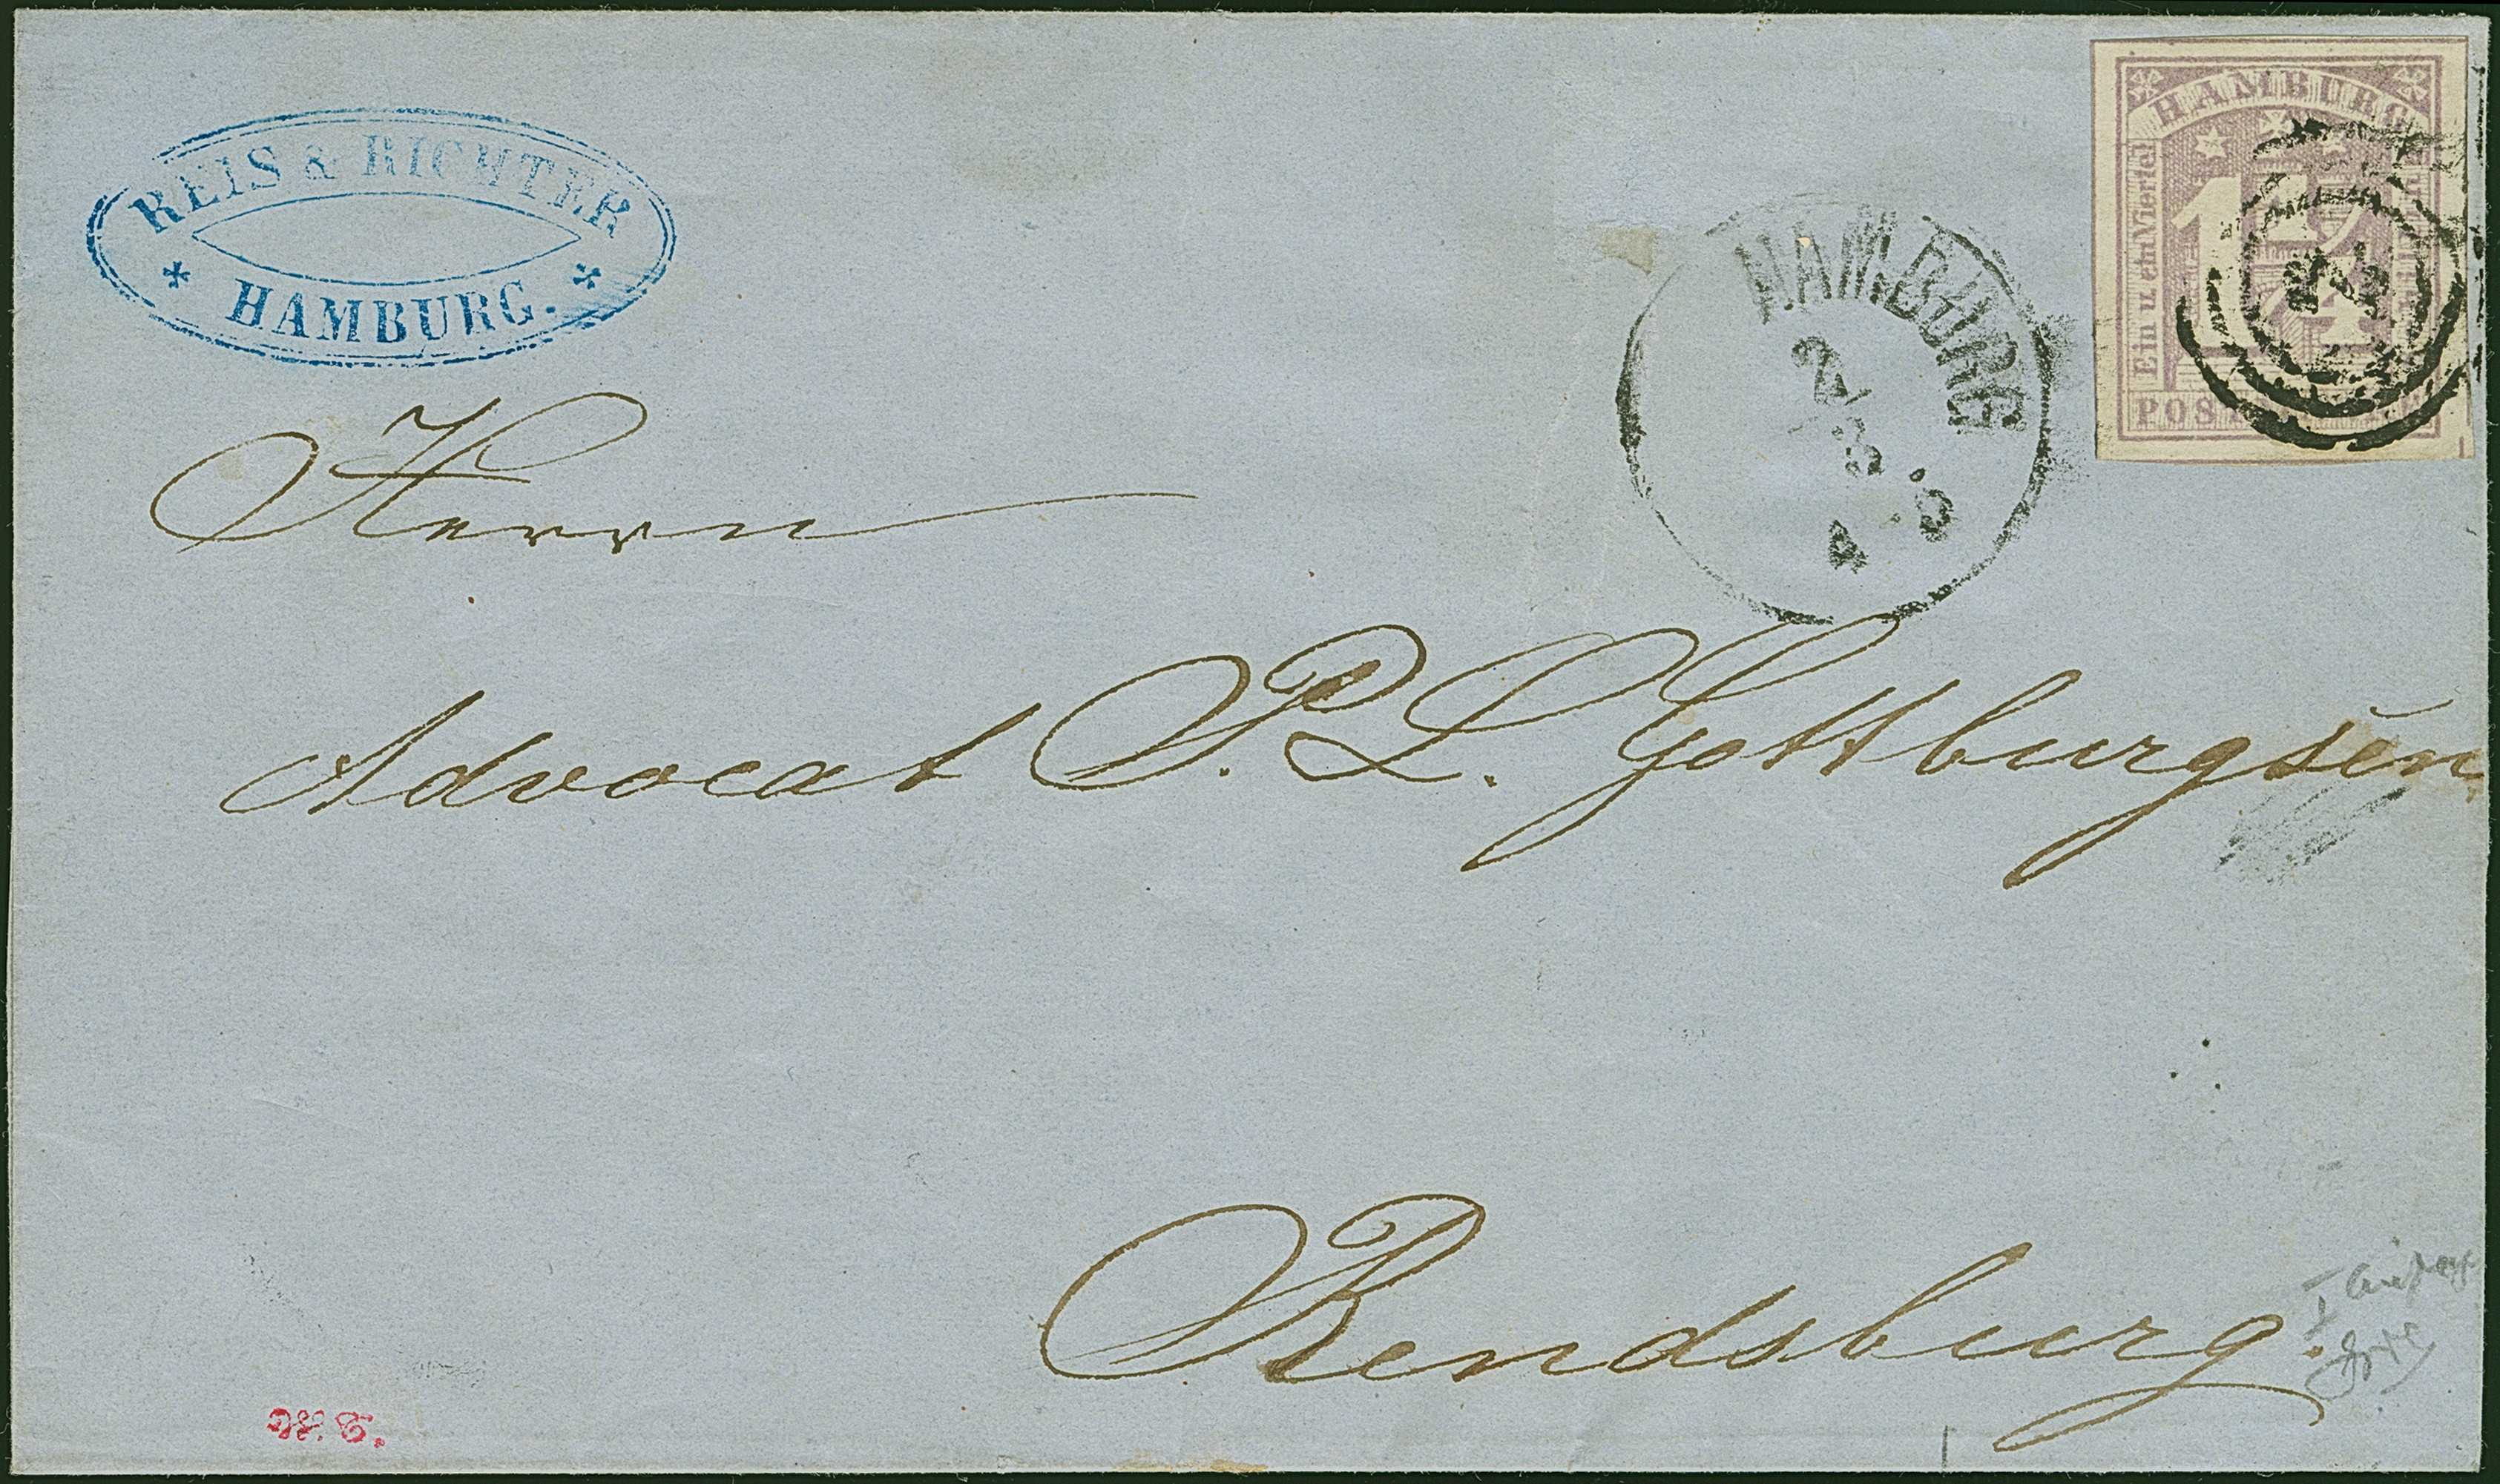 REIS & RICHTER
* HAMBURG. *
HAMBURG
Ein u. ein Viertel
1 1/4
HAMBURG
2/3
4
Herrn
Advocat P. L. Gottburgsen
Rendsburg.